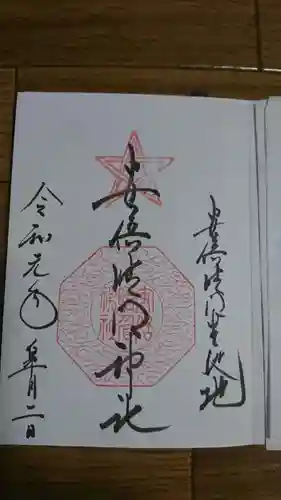 安倍晴明生誕地
安倍晴明神社
令和元年 皐月二日